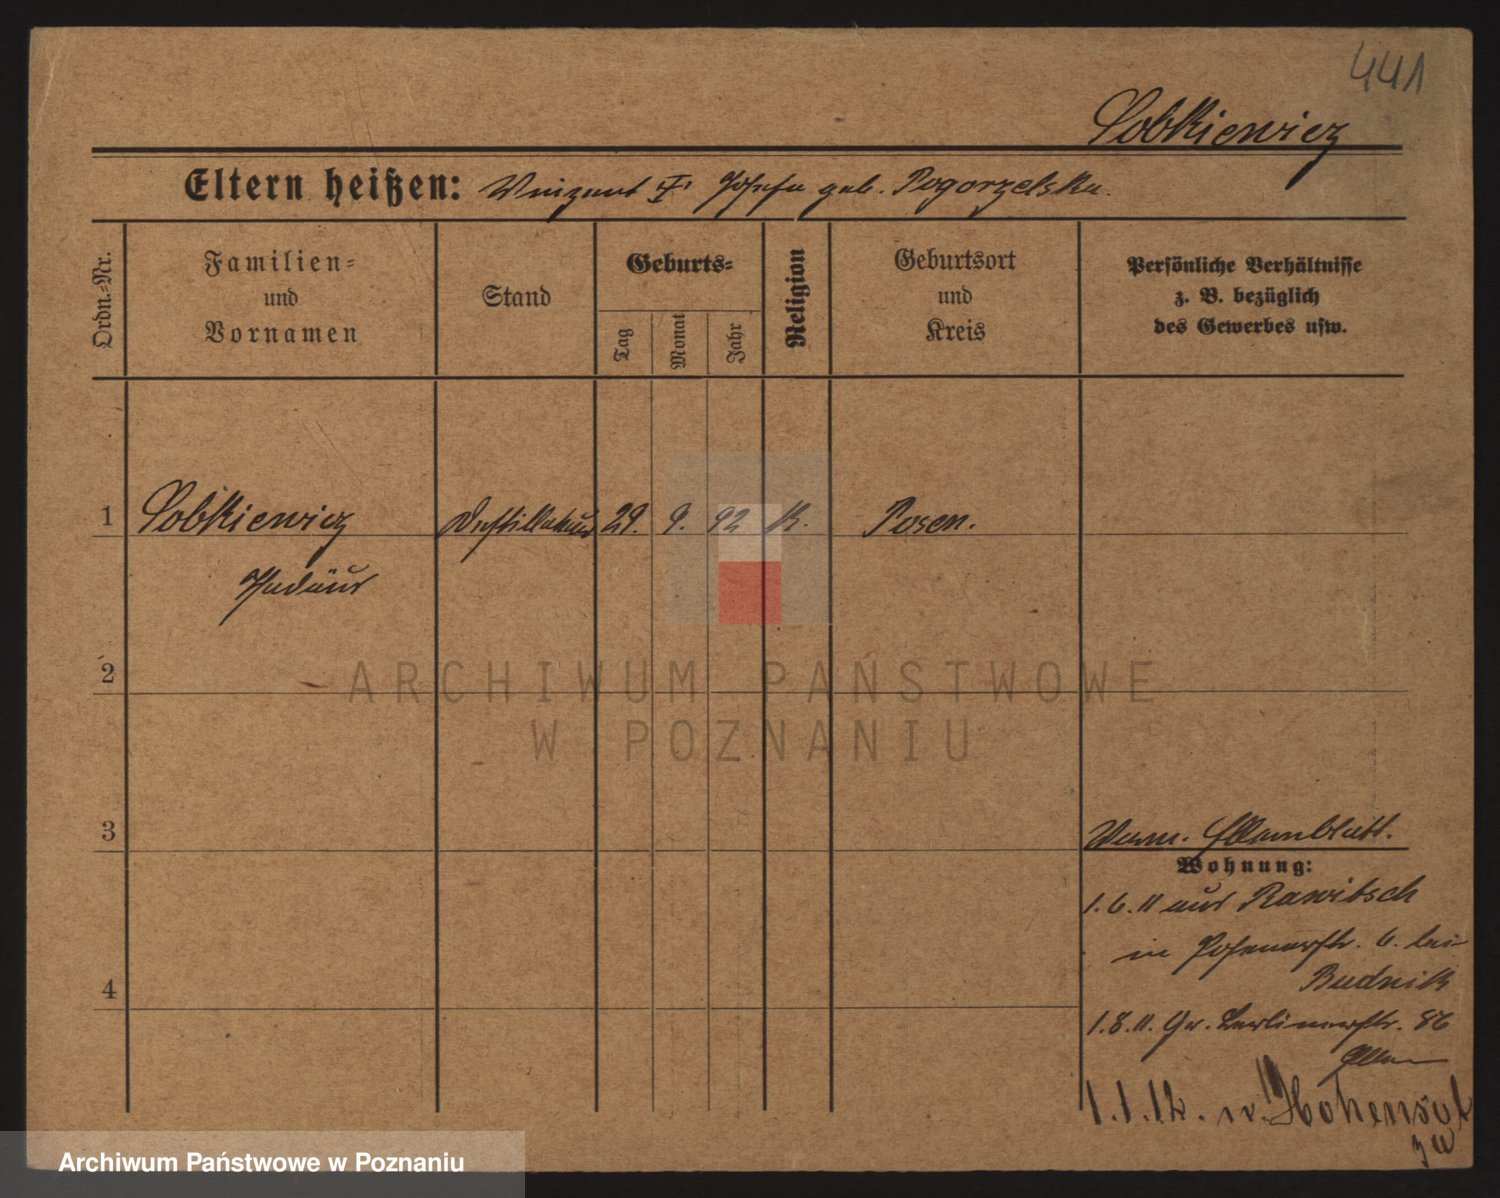 441
Sobkiewicz
Eltern heißen: Vinzent u. Josefa geb. Pogorzelska.
Ordn.-Nr.
Familien-
und
Vornamen
Stand
Geburts-
Tag
Monat
Jahr
Religion
Geburtsort
und
Kreis
Persönliche Verhältnisse
z. B. bezüglich
des Gewerbes usw.
1 Sobkiewicz Destillateur 29. 9. 92 K. Posen.
Thadäus
2
ARCHIWUM PAŃSTWOWE
W POZNANIU
3
Stammblatt.
Wohnung:
1.6.11 aus Rawitsch
in Posenerstr. 6. bei
Budnik
4
1.8.11. Gr. Berlinerstr. 86
1.1.12. n. Hohensalza
Archiwum Państwowe w Poznaniu